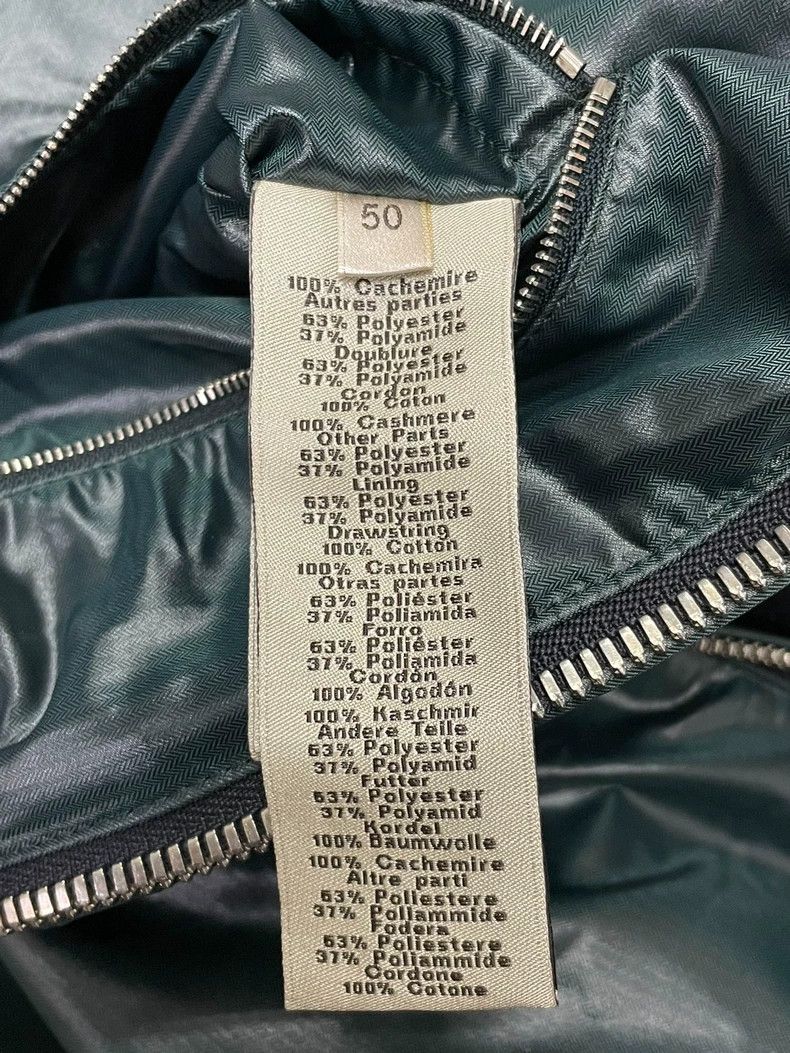 50
100% Cachemire
Autres parties
63% Polyester
37% Polyamide
Doublure
63% Polyester
37% Polyamide
Cordon
100% Coton
100% Cashmere
Other Parts
63% Polyester
37% Polyamide
Lining
63% Polyester
37% Polyamide
Drawstring
100% Cotton
100% Cachemira
Otras partes
63% Poliéster
37% Poliamida
Forro
63% Poliéster
37% Poliamida
Cordón
100% Algodón
100% Kaschmir
Andere Teile
63% Polyester
37% Polyamid
Futter
63% Polyester
37% Polyamid
Kordel
100% Baumwolle
100% Cachemire
Altre parti
63% Poliestere
37% Poliammide
Fodera
63% Poliestere
37% Poliammide
Cordone
100% Cotone